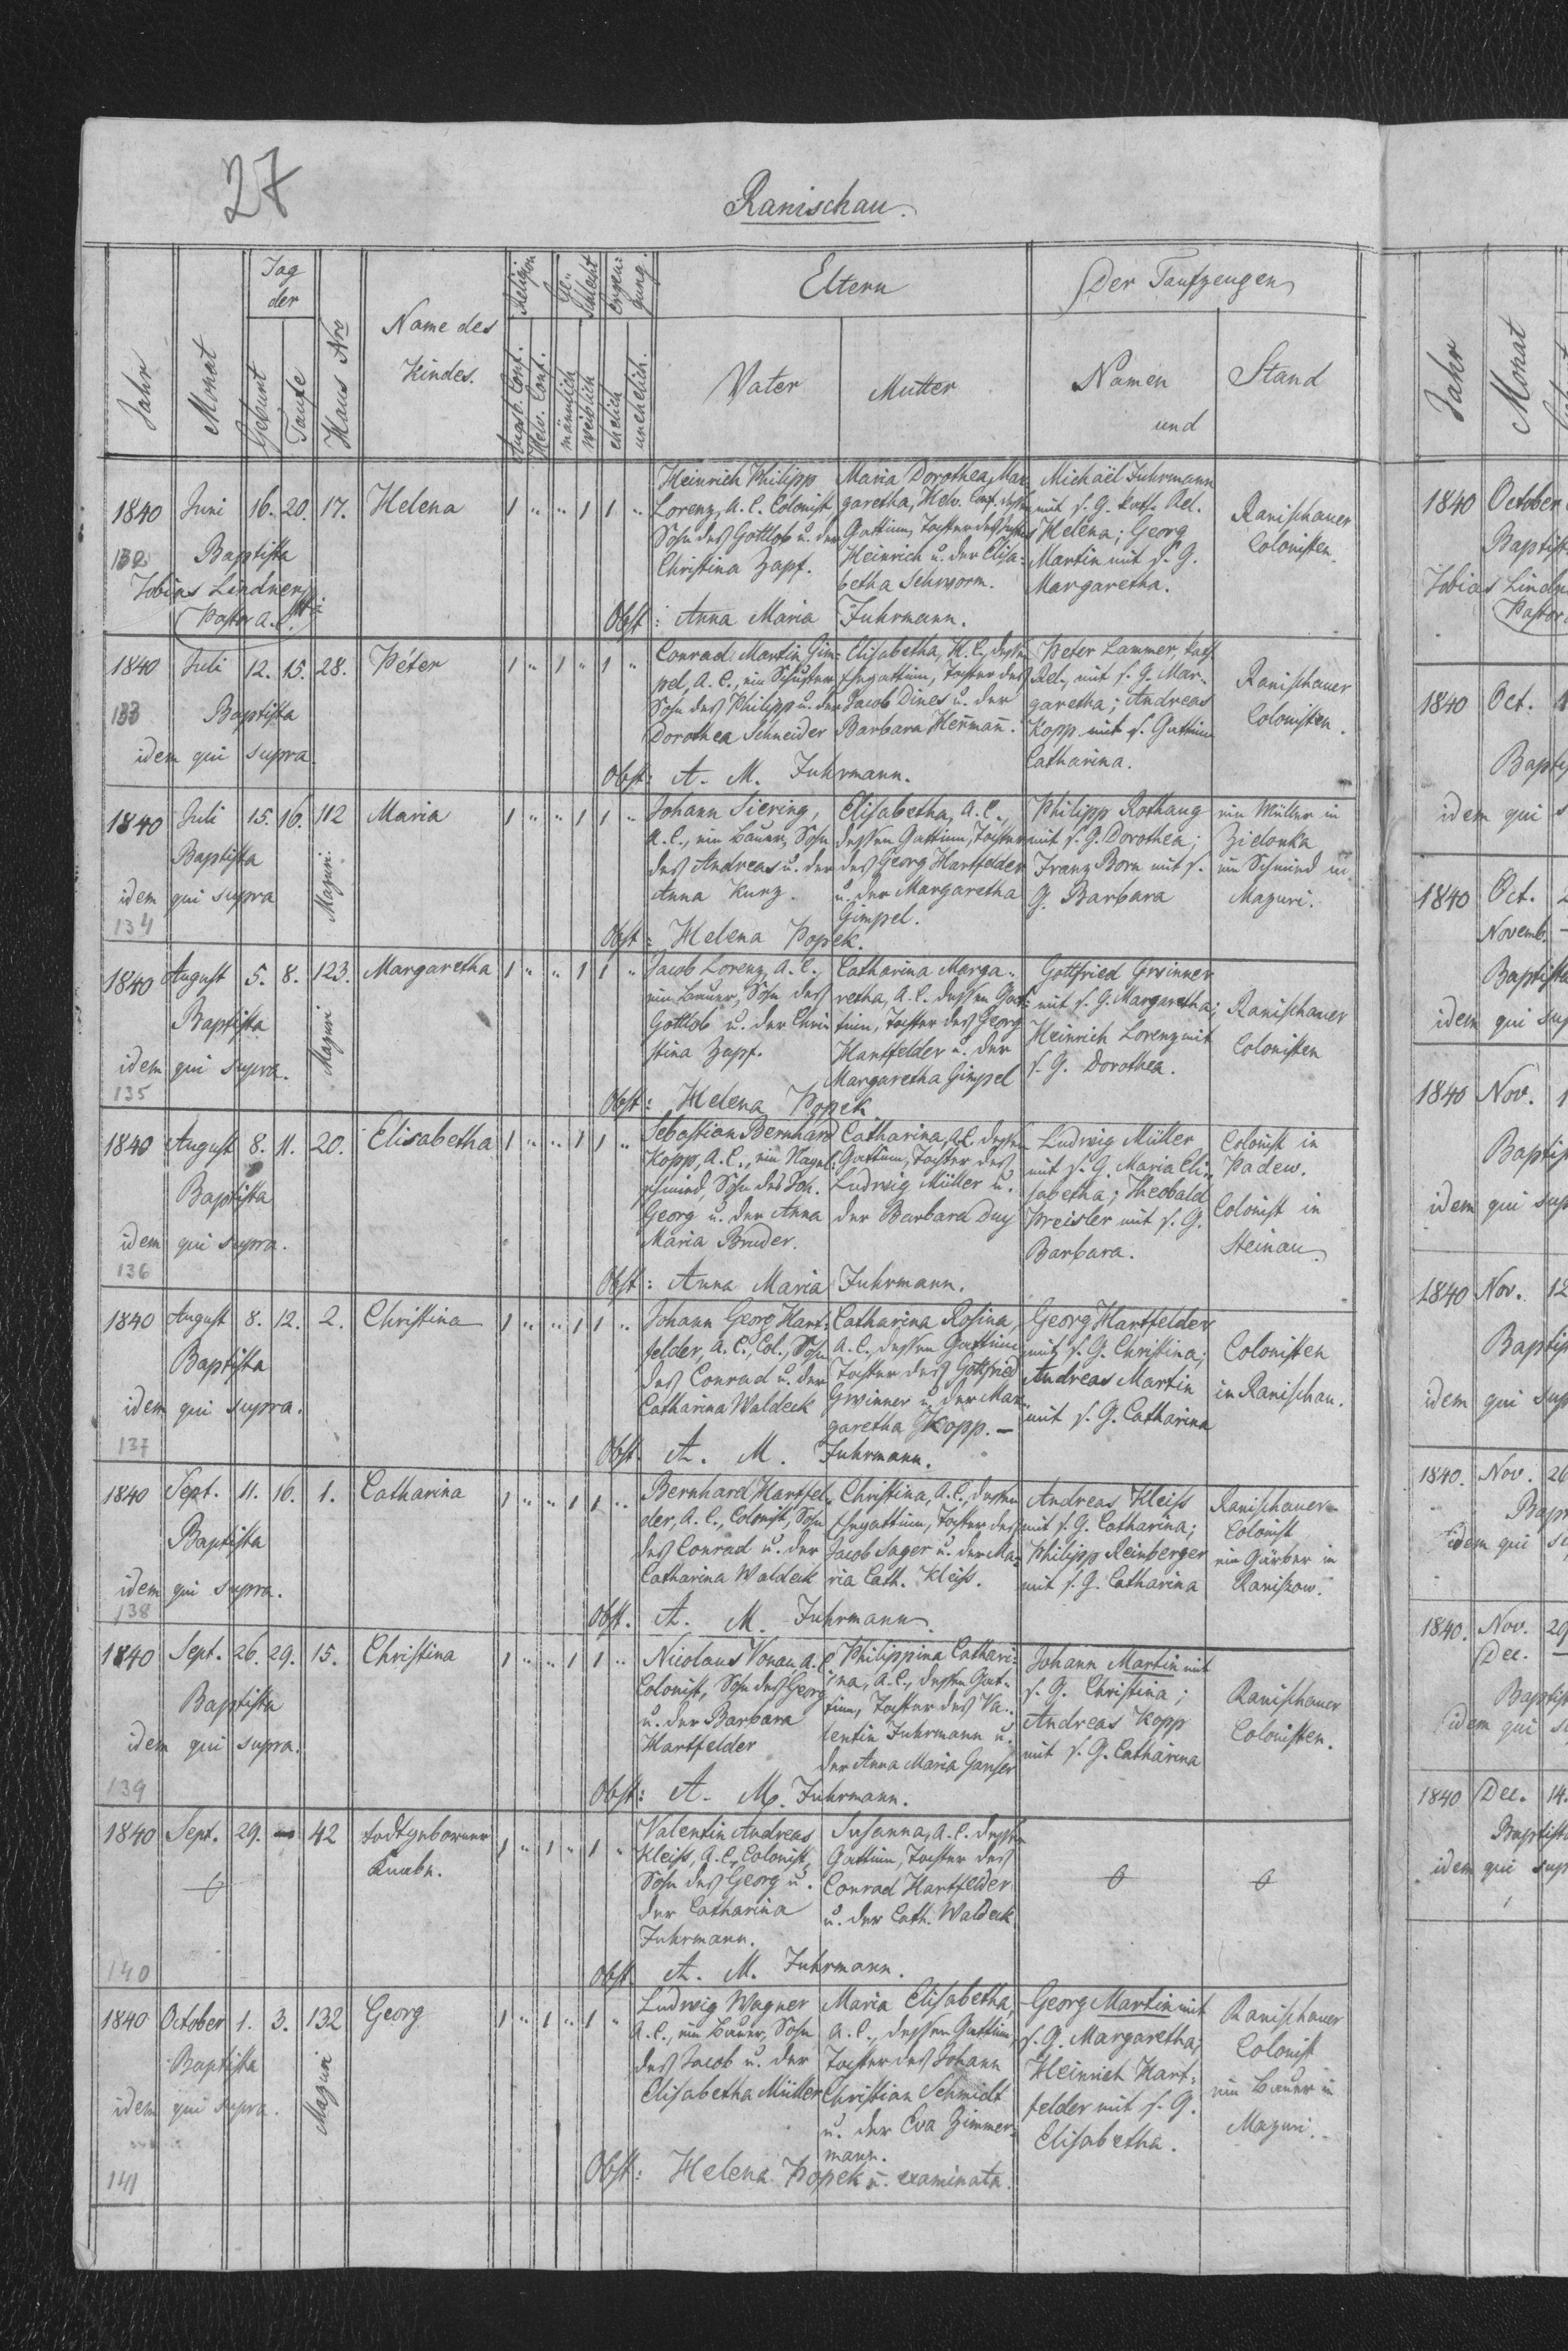 27
Ranischau.
Jahr
Monat
Tag
der
Geburt
Taufe
Haus Nro
Name des
Kindes.
Religion
Augsb. Conf.
Helv. Conf.
Ge-
schlecht
männlich
weiblich
Erzeu-
gung.
ehelich
unehelich.
Eltern
Vater
Mutter
Der Taufzeugen
Namen
und
Stand
1840 Juni 16. 20. 17. Helena 1 " " 1 1 "
132 Baptista
Tobias Lindner
Pastor A. C.
Heinrich Philipp
Lorenz, A. C. Colonist
Sohn des Gottlob u. der
Christina Zapf.
Maria Dorothea Mar-
garetha, Helv. Conf. dessen
Gattinn, Tochter des
Heinrich u. der Elisa-
betha Schworm.
Michaël Fuhrmann
mit s. G. kath. Rel.
Helena; Georg
Martin mit s. G.
Margaretha.
Ranischauer
Colonisten.
Obst: Anna Maria Fuhrmann.
1840 Juli 12. 15. 28. Péter 1 " 1 " 1 "
133 Baptista
idem qui supra.
Conrad Martin Gim-
pel, A. C., ein Schuster
Sohn des Philipp u. der
Dorothea Schneider
Elisabetha, H. C., dessen
Ehegattinn, Tochter des
Jacob Dines u. der
Barbara Herrmann.
Peter Lammer, kath.
Rel., mit s. G. Mar-
garetha; Andreas
Kopp mit s. Gattinn
Catharina.
Ranischauer
Colonisten.
Obst: A. M. Fuhrmann.
1840 Juli 15. 16. 112 Maria 1 " " 1 1 "
Mazuri.
Baptista
idem qui supra
134
Johann Siering,
A. C., ein Bauer, Sohn
des Andreas u. der
Anna Kunz.
Elisabetha, A. C.,
dessen Gattinn, Tochter
des Georg Hartfelder
u. der Margaretha
Gimpel.
Philipp Rothaug
mit s. G. Dorothea;
Franz Born mit s.
G. Barbara
ein Müller in
Zielonka
ein Schmied in
Mazuri.
Obst: Helena Popek.
1840 August 5. 8. 123. Margaretha 1 " " 1 1 "
Mazuri
Baptista
idem qui supra.
135
Jacob Lorenz, A. C.,
ein Bauer, Sohn des
Gottlob u. der Chri-
stina Zapf.
Catharina Marga-
retha, A. C. dessen Gat-
tinn, Tochter des Georg
Hartfelder u. der
Margaretha Gimpel
Gottfried Gwinner
mit s. G. Margaretha;
Heinrich Lorenz mit
s. G. Dorothea.
Ranischauer
Colonisten
Obst: Helena Popek
1840 August 8. 11. 20. Elisabetha 1 " " 1 1 "
Baptista
idem qui supra.
136
Sebastian Bernhard
Kopp, A. C., ein Nagel-
schmied, Sohn des Joh.
Georg u. der Anna
Maria Bruder.
Catharina, A. C. dessen
Gattinn, Tochter des
Ludwig Müller u.
der Barbara Duy
Ludwig Müller
mit s. G. Maria Eli-
sabetha; Theobald
Preisler mit s. G.
Barbara.
Colonist in
Padew.
Colonist in
Steinau
Obst: Anna Maria Fuhrmann.
1840 August 8. 12. 2. Christina 1 " " 1 1 "
Baptista
idem qui supra.
137
Johann Georg Hart-
felder, A. C., Col., Sohn
des Conrad u. der
Catharina Waldeck
Catharina Rosina,
A. C., dessen Gattinn
Tochter des Gottfried
Gwinner u. der Mar-
garetha Kopp. —
Georg Hartfelder
mit s. G. Christina;
Andreas Martin
mit s. G. Catharina
Colonisten
in Ranischau.
Obst. A. M. Fuhrmann.
1840 Sept. 11. 16. 1. Catharina 1 " " 1 1 "
Baptista
idem qui supra.
138
Bernhard Hartfel-
der, A. C., Colonist, Sohn
des Conrad u. der
Catharina Waldeck
Christina, A. C., dessen
Ehegattinn, Tochter des
Jacob Sager u. der Ma-
ria Cath. Kleiss.
Andreas Kleiss
mit s. G. Catharina;
Philipp Reinberger
mit s. G. Catharina
Ranischauer
Colonist
ein Gärber in
Raniszow.
Obst. A. M. Fuhrmann
1840 Sept. 26. 29. 15. Christina 1 " " 1 1 "
Baptista
idem qui supra.
139
Nicolaus Vonau, A. C.
Colonist, Sohn des Georg
u. der Barbara
Hartfelder
Philippina Cathari-
na, A. C., dessen Gat-
tinn, Tochter des Va-
lentin Fuhrmann u.
der Anna Maria Ganser
Johann Martin mit
s. G. Christina;
Andreas Kopp
mit s. G. Catharina
Ranischauer
Colonisten.
Obst: A. M. Fuhrmann.
1840 Sept. 29. — 42 todtgeborner
Knabe. 1 " 1 " 1 "
140
Valentin Andreas
Kleiss, A. C., Colonist,
Sohn des Georg u.
der Catharina
Fuhrmann.
Susanna, A. C. dessen
Gattinn, Tochter des
Conrad Hartfelder
u. der Cath. Waldeck
Obst. A. M. Fuhrmann.
1840 October 1. 3. 132 Georg 1 " 1 " 1 "
Mazuri
Baptista
idem qui supra.
141
Ludwig Wagner
A. C., ein Bauer, Sohn
des Jacob u. der
Elisabetha Müller
Maria Elisabetha,
A. C., dessen Gattinn,
Tochter des Johann
Christian Schmidt
u. der Eva Zimmer-
mann.
Georg Martin mit
s. G. Margaretha;
Heinrich Hart-
felder mit s. G.
Elisabetha.
Ranischauer
Colonist
ein Bauer in
Mazuri.
Obst: Helena Popek n. examinata.
Jahr
Monat
1840 October
Baptist
Tobias Lindn
Pastor
1840 Oct.
Baptis
idem qui s
1840 Oct. 2
Novemb. —
Baptista
idem qui sup
1840 Nov. 1
Baptis
idem qui sup
1840 Nov. 12
Baptis
idem qui sup
1840. Nov. 26
Bapt
idem qui su
1840. Nov. 29
Dec. —
Baptist
idem qui su
1840 Dec. 14.
Baptista
idem qui sup